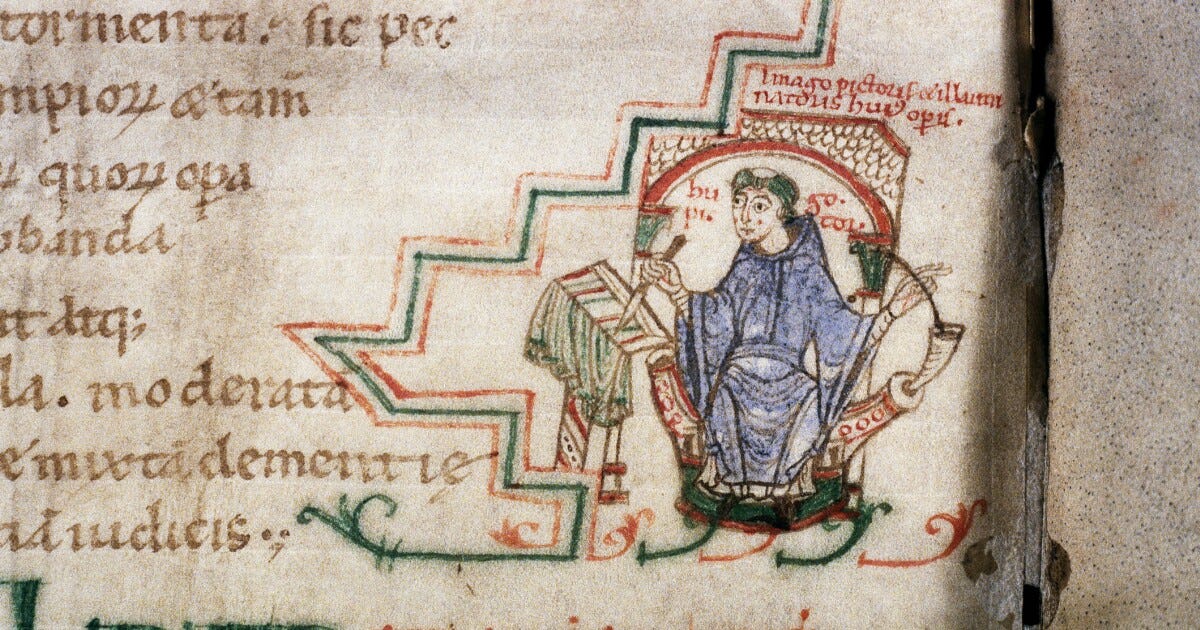 tormenta. sic pec
mpioꝝ & tam̄
quoꝝ oꝑa
obanda
atq;
la. moderata
mixta clementię
iudiciis.
Imago pictoris & illumi
natoris huiꝰ oꝑis.
hu go.
pi. ctor.